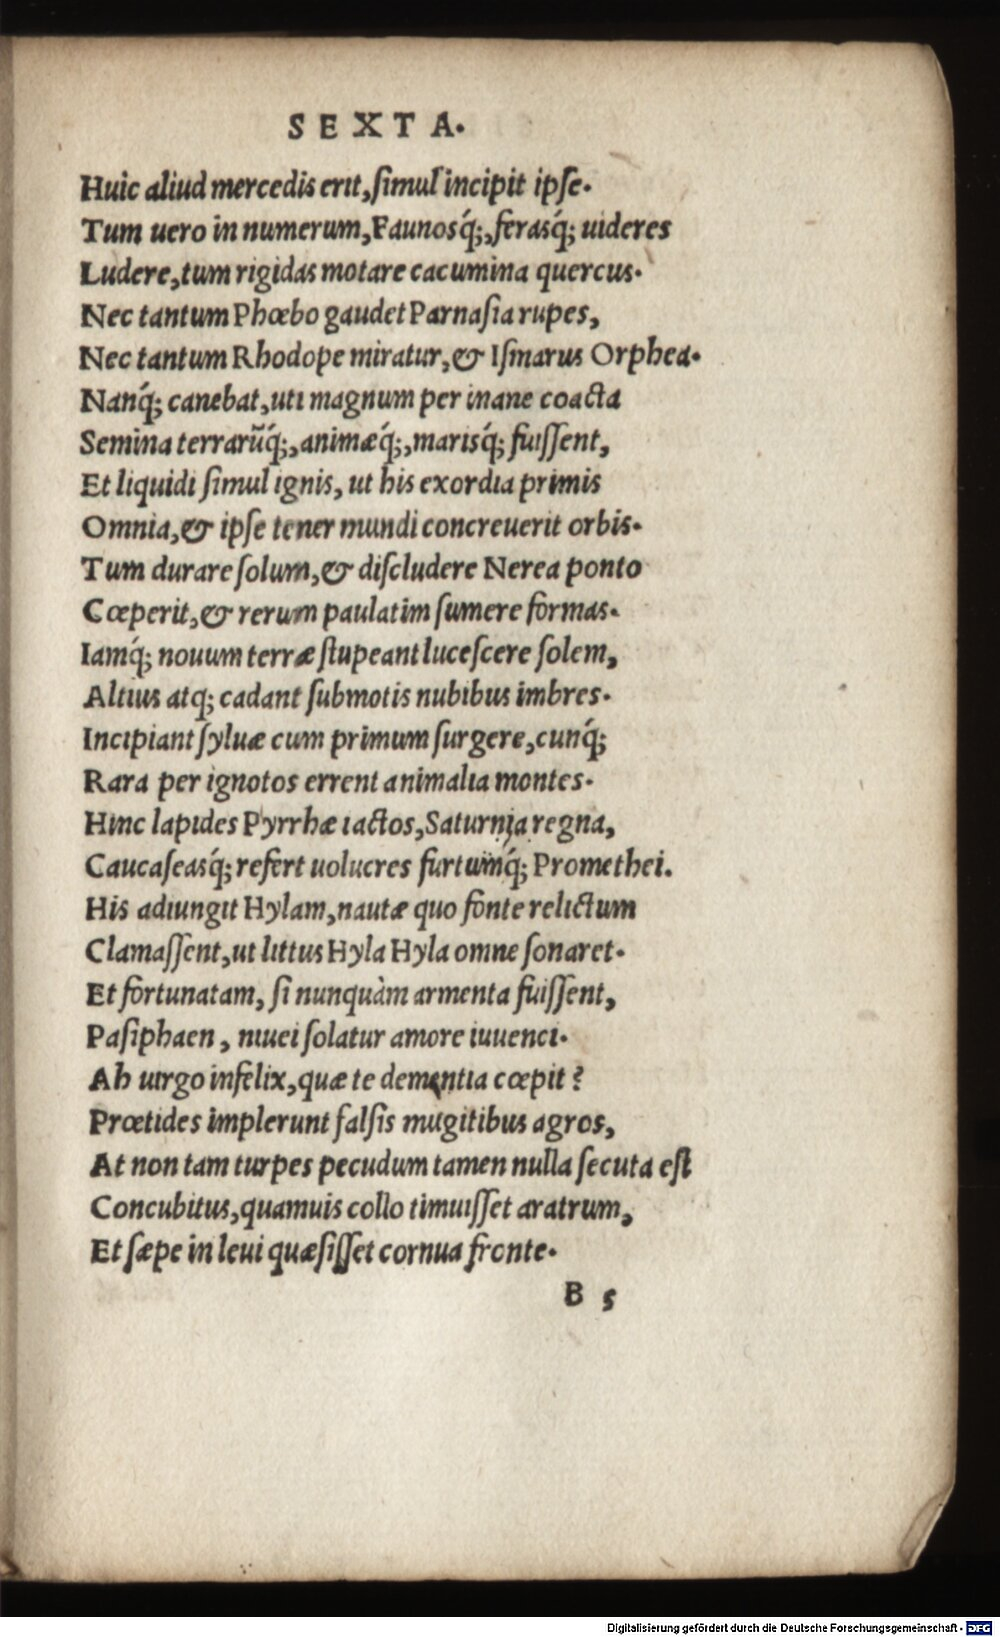 SEXTA.
Huic aliud mercedis erit, ſimul incipit ipſe.
Tum uero in numerum, Faunosq́;, ferasq́; uideres
Ludere, tum rigidas motare cacumina quercus.
Nec tantum Phœbo gaudet Parnaſia rupes,
Nec tantum Rhodope miratur, & Iſmarus Orphea.
Nanq́; canebat, uti magnum per inane coacta
Semina terrarũq́;, animæq́;, marisq́; fuiſſent,
Et liquidi ſimul ignis, ut his exordia primis
Omnia, & ipſe tener mundi concreuerit orbis.
Tum durare ſolum, & diſcludere Nerea ponto
Cœperit, & rerum paulatim ſumere formas.
Iamq́; nouum terræ ſtupeant luceſcere ſolem,
Altius atq; cadant ſubmotis nubibus imbres.
Incipiant ſyluæ cum primum ſurgere, cunq́;
Rara per ignotos errent animalia montes.
Hinc lapides Pyrrhæ iactos, Saturnia regna,
Caucaſeasq́; refert uolucres furtumq́; Promethei.
His adiungit Hylam, nautæ quo fonte relictum
Clamaſſent, ut littus Hyla Hyla omne ſonaret.
Et fortunatam, ſi nunquàm armenta fuiſſent,
Paſiphaen, niuei ſolatur amore iuuenci.
Ah uirgo infelix, quæ te dementia cœpit?
Prœtides implerunt falſis mugitibus agros,
At non tam turpes pecudum tamen nulla ſecuta eſt
Concubitus, quamuis collo timuiſſet aratrum,
Et ſæpe in leui quæſiſſet cornua fronte.
B 5
Digitalisierung gefördert durch die Deutsche Forschungsgemeinschaft - DFG